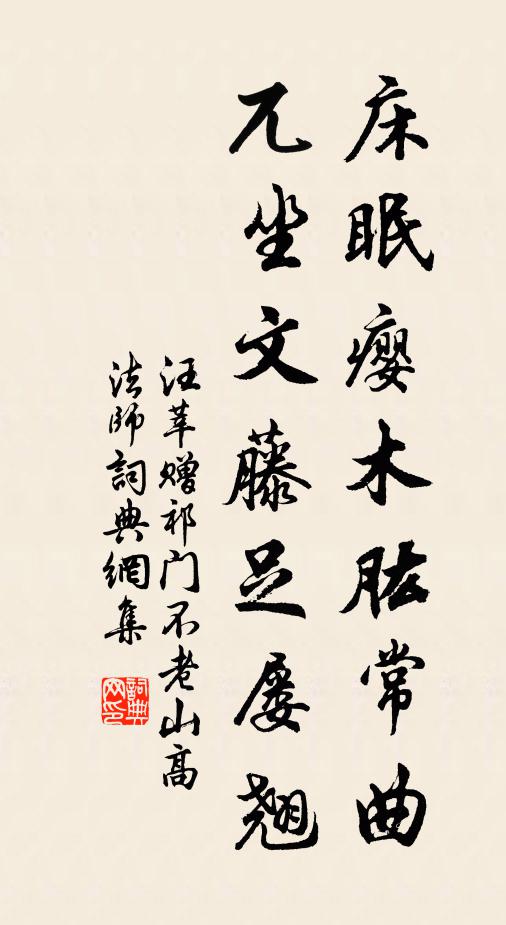 床眠癭木肱常曲
兀坐文藤足屡翹
汪莘赠祁门不老山高
法師詞典網集
詞典网印